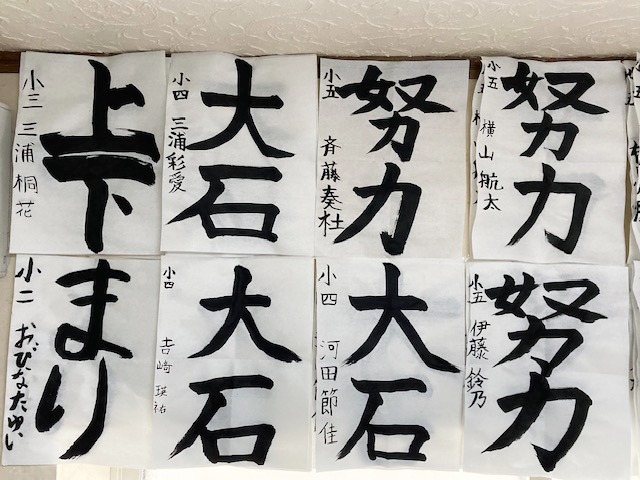 上下
小三 三浦桐花
大石
小四 三浦彩愛
努力
小五 斉藤奏杜
努力
小五 横山航太
まり
小二 おびなたゆい
大石
小四 吉崎瑛祐
大石
小四 河田節佳
努力
小五 伊藤鈴乃